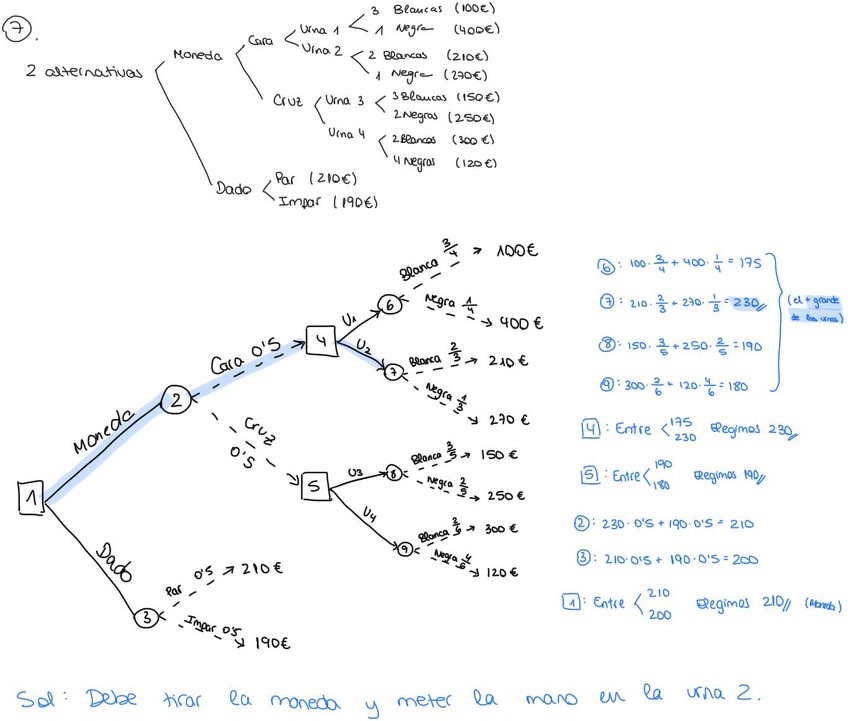 7.
2 alternativas
Moneda
Cara
Urna 1
3 Blancas (100€)
1 Negra (400€)
Urna 2
2 Blancas (210€)
1 Negra (270€)
Cruz
Urna 3
3 Blancas (150€)
2 Negras (250€)
Urna 4
2 Blancas (300€)
4 Negras (120€)
Dado
Par (210€)
Impar (190€)
1
Moneda
2
Cara 0'5
4
U1
6
Blanca 3/4
100€
Negra 1/4
400€
U2
7
Blanca 2/3
210€
Negra 1/3
270€
Cruz
0'5
5
U3
8
Blanca 3/5
150€
Negra 2/5
250€
U4
9
Blanca 2/6
300€
Negra 4/6
120€
Dado
3
Par 0'5
210€
Impar 0'5
190€
6: 100·3/4 + 400·1/4 = 175
7: 210·2/3 + 270·1/3 = 230
8: 150·3/5 + 250·2/5 = 190
9: 300·2/6 + 120·4/6 = 180
(el + grande
de las urnas)
4: Entre < 175 230 Elegimos 230
5: Entre < 190 180 Elegimos 190
2: 230·0'5 + 190·0'5 = 210
3: 210·0'5 + 190·0'5 = 200
1: Entre < 210 200 Elegimos 210 (Moneda)
Sol: Debe tirar la moneda y meter la mano en la urna 2.